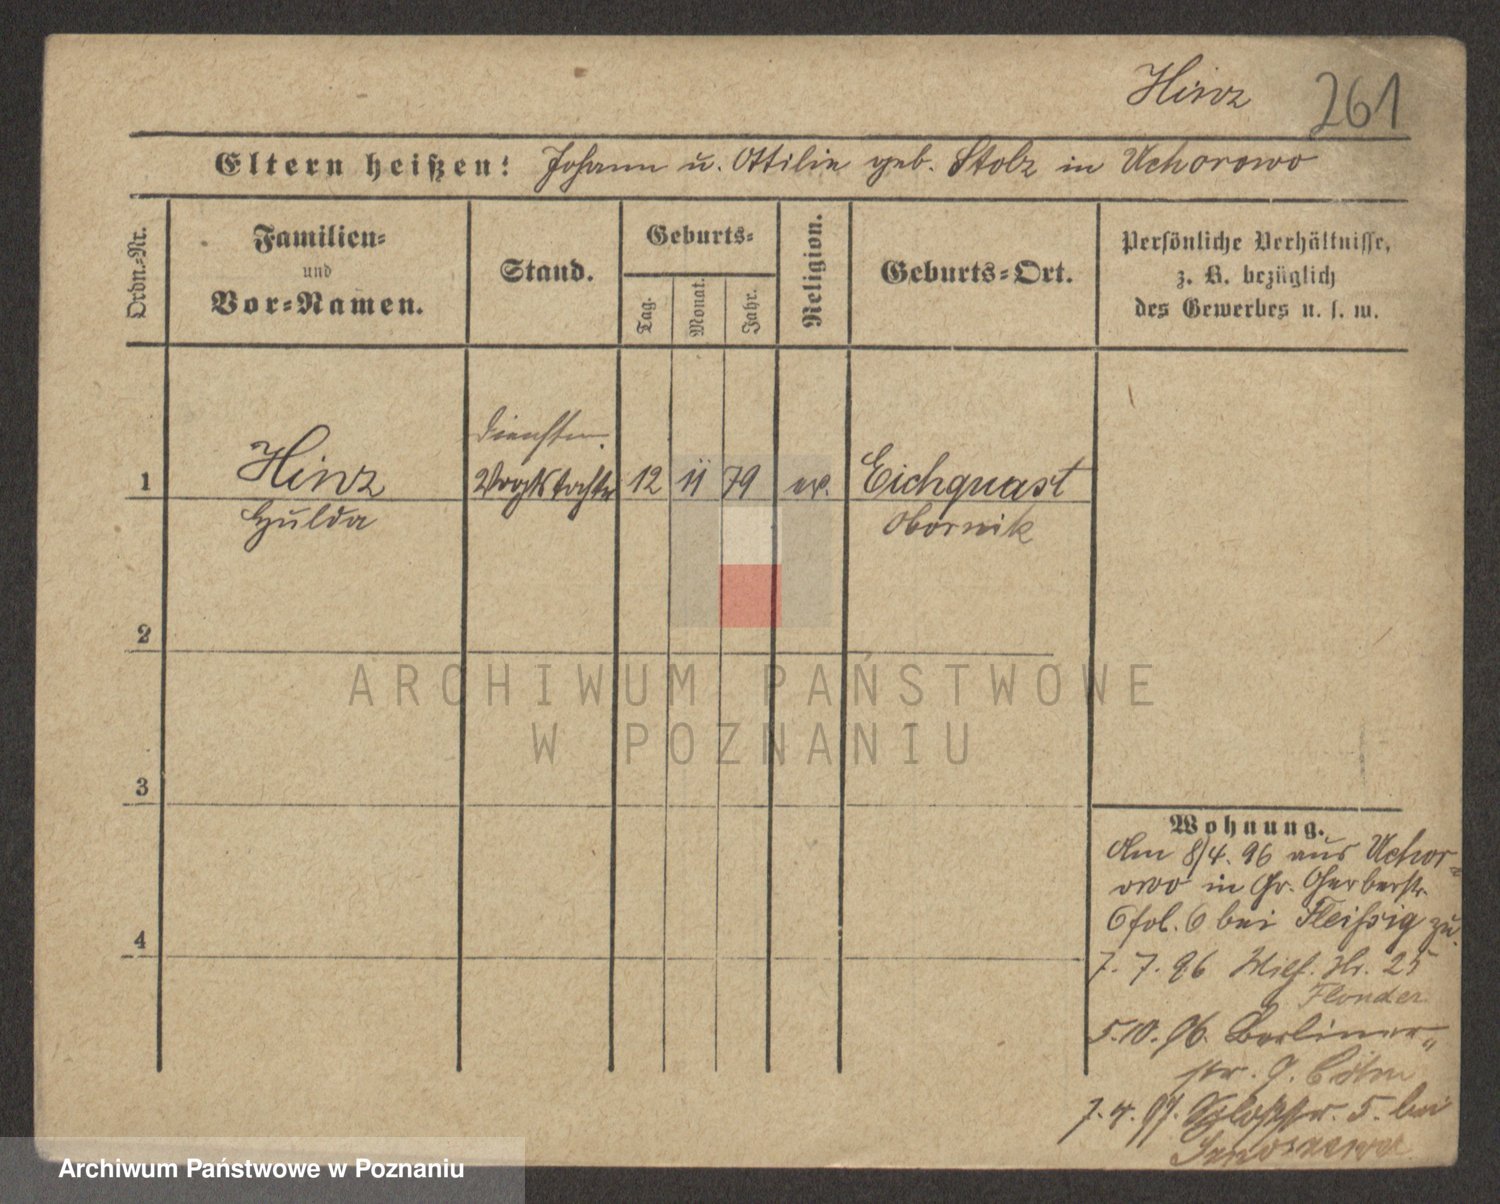 Hinz 261
Eltern heißen: Johann u. Ottilie geb. Stolz in Uchorowo
Ordn.-Nr.
Familien-
und
Vor-Namen.
Stand.
Geburts-
Tag.
Monat.
Jahr.
Religion.
Geburts-Ort.
Persönliche Verhältnisse,
z. B. bezüglich
des Gewerbes u. s. w.
1 Hinz
Hulda
Dienstm.
Vogtstochter
12 11 79 ev. Eichquast
Obornik
2
3
4
Wohnung.
Am 8/4. 96 aus Uchor-
owo in Gr. Gerberstr.
6 fol. 6 bei Fleissig zu.
7. 7. 96 Wilh. Str. 25
Flonder
5.10.96. Berliner-
str. 9. Cohn
7.4.97. Schloßstr. 5. bei
ARCHIWUM PAŃSTWOWE
W POZNANIU
Archiwum Państwowe w Poznaniu